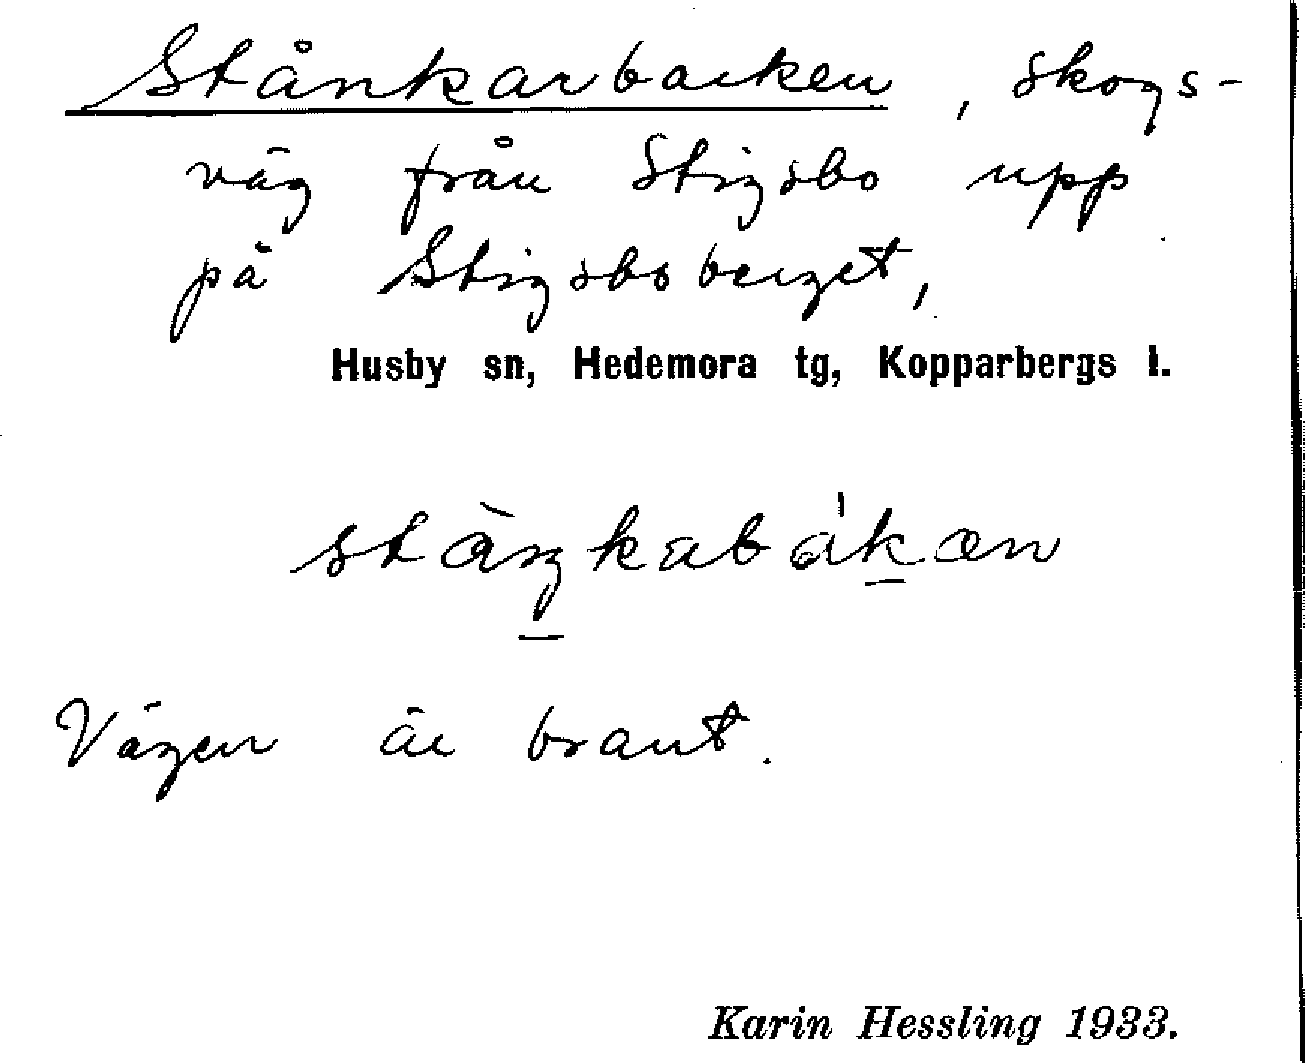 Stånkarbacken, skogs-
väg från Stigsbo upp
på Stigsboberget,
Husby sn, Hedemora tg, Kopparbergs l.
Vägen är brant.
Karin Hessling 1933.